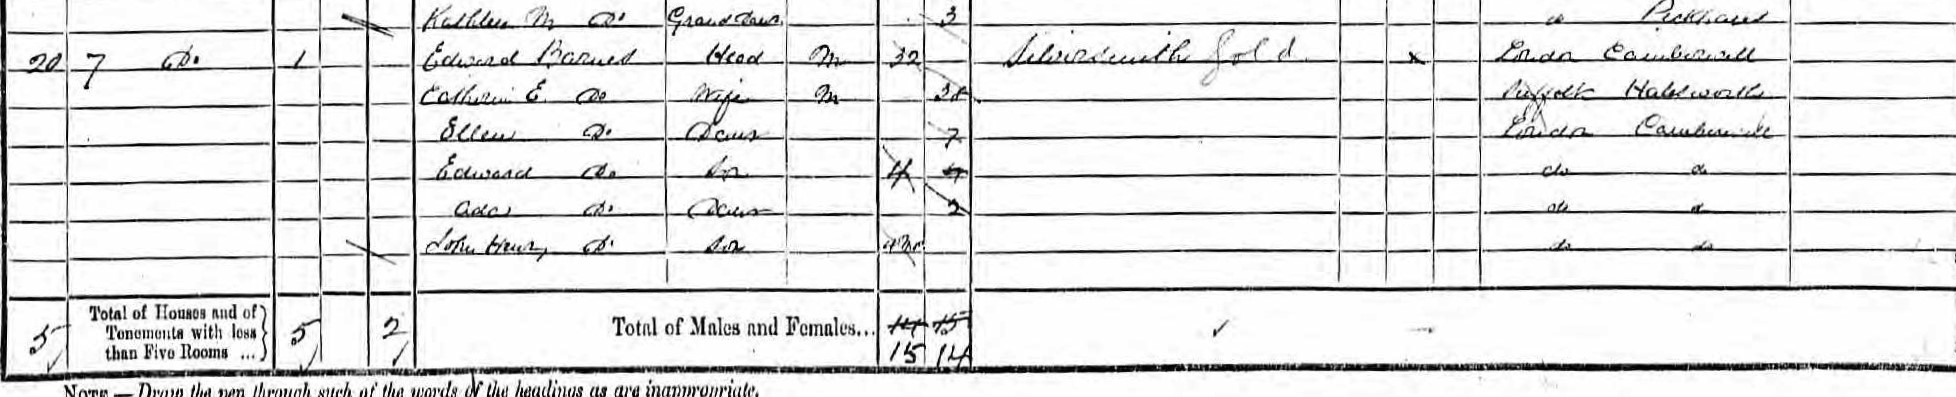 Kathleen M Do Grandaur 3 do Peckham
20 7 Do 1 Edward Barnes Head M 32 Silversmith Gold x London Camberwell
Catherine E. Do Wife M Suffolk Halesworth
Ellen Do Daur 7 London Camberwell
Edward Do Son 4 4 do do
Ada Do Daur 2 do do
John Henry Do Son do do
5 Total of Houses and of Tenements with less than Five Rooms ... 5 2 Total of Males and Females... 14 15
15 14
NOTE.—Draw the pen through such of the words of the headings as are inappropriate.